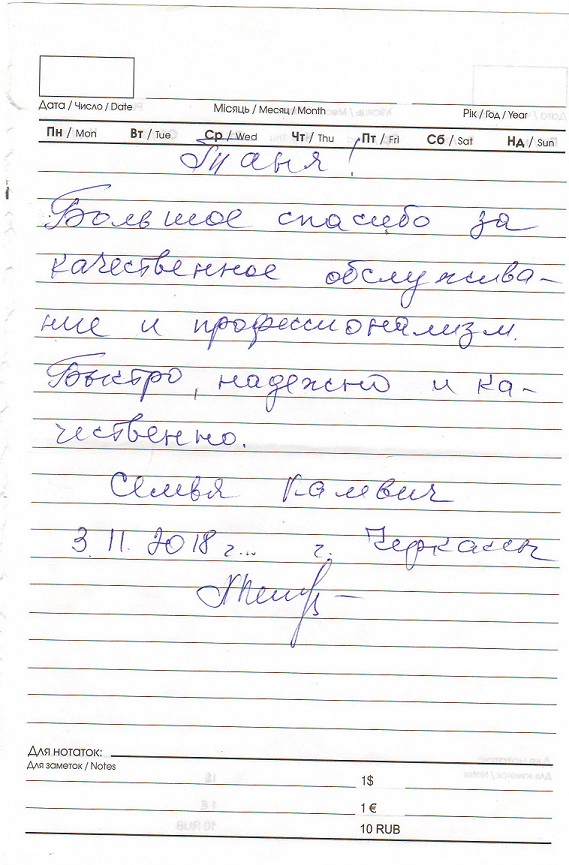 Дата / Число / Date Місяць / Месяц / Month Рік / Год / Year
Пн / Mon Вт / Tue Ср / Wed Чт / Thu Пт / Fri Сб / Sat Нд / Sun
Таня!
Большое спасибо за
качественное обслужива-
ние и профессионализм.
Быстро, надежно и ка-
чественно.
Семья Калевич
3.11.2018 г... г. Черкассы
Для нотаток:
Для заметок / Notes
1$
1 €
10 RUB